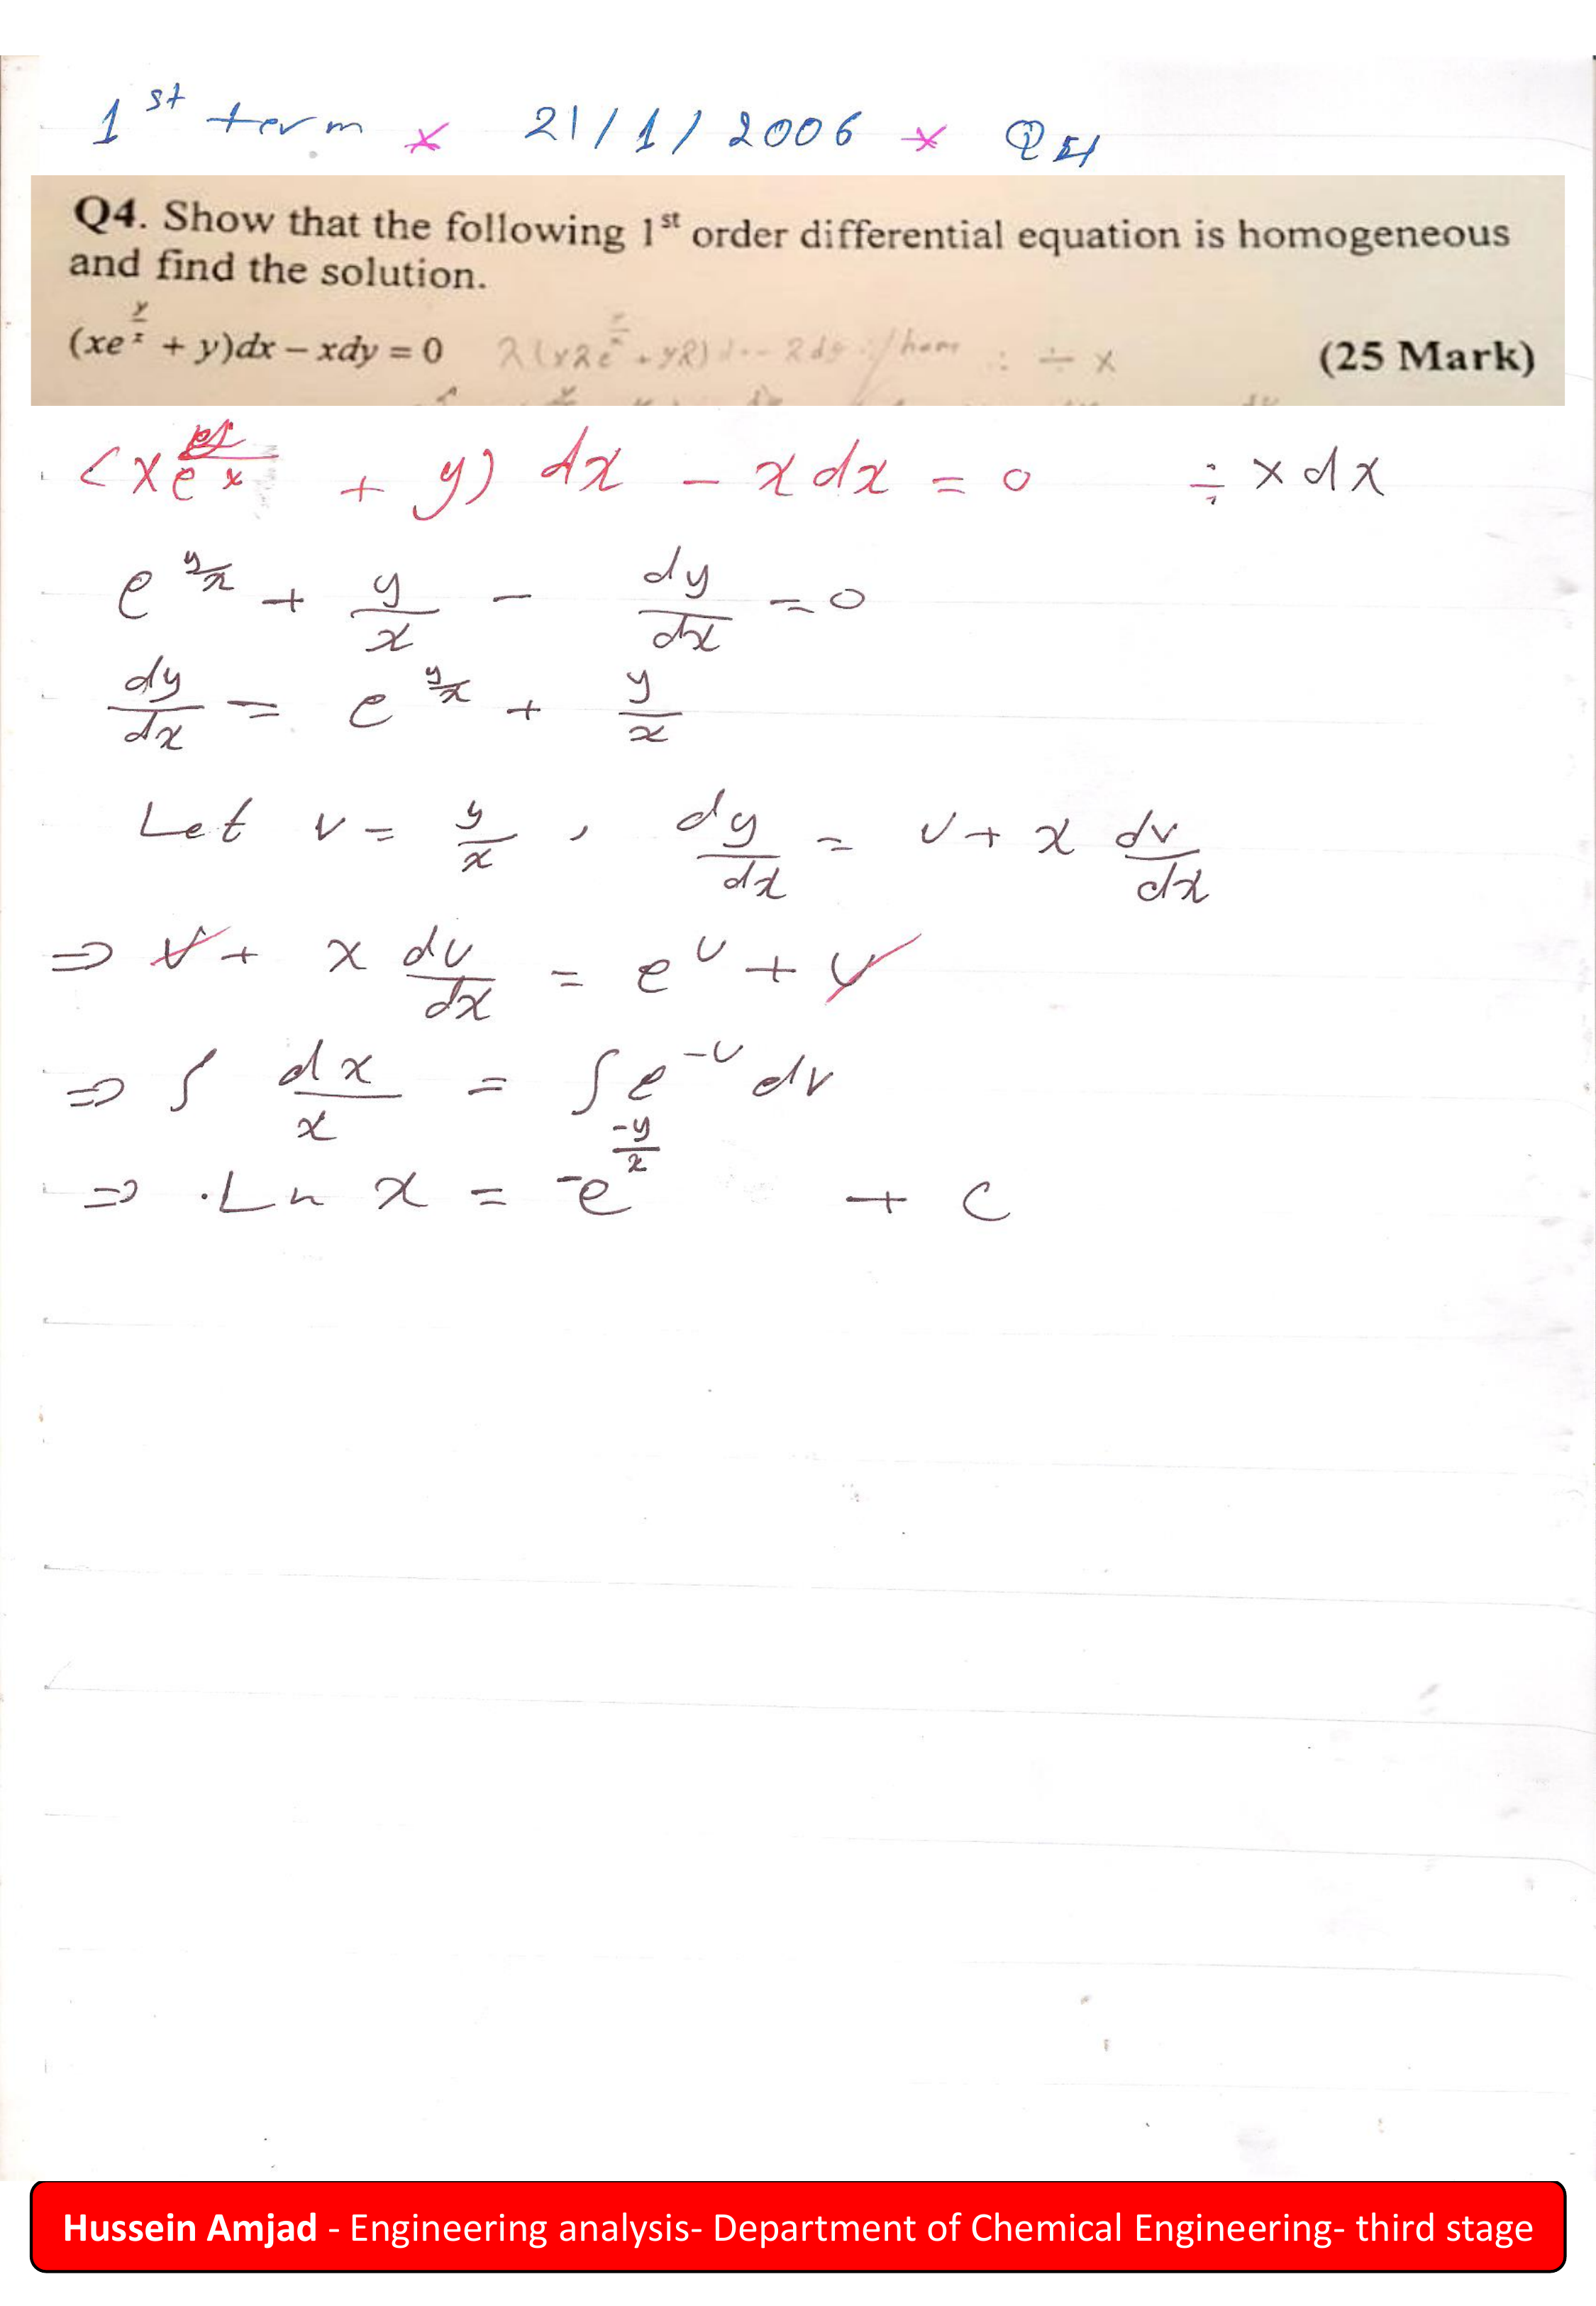 1st term * 21/1/2006 * Q4
Q4. Show that the following 1st order differential equation is homogeneous
and find the solution.
(xe^(y/x) + y)dx – xdy = 0 (25 Mark)
(xe^(y/x) + y) dx - x dx = 0 ÷ x dx
e^(y/x) + y/x - dy/dx = 0
dy/dx = e^(y/x) + y/x
Let v = y/x , dy/dx = v + x dv/dx
⇒ v + x dv/dx = e^v + v
⇒ ∫ dx/x = ∫ e^-v dv
⇒ Ln x = -e^(-y/x) + C
Hussein Amjad - Engineering analysis- Department of Chemical Engineering- third stage